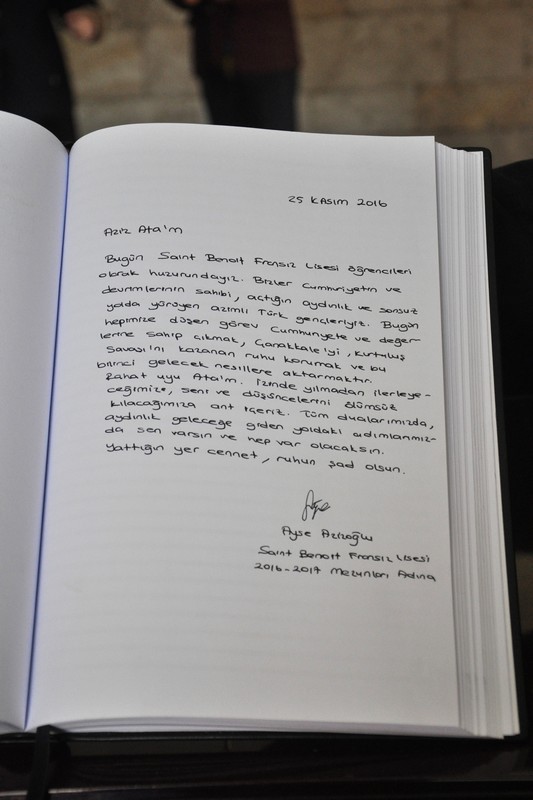 25 KASIM 2016
Aziz Ata'm
Bugün Saint Benoit Fransız Lisesi öğrencileri
olarak huzurundayız. Bizler Cumhuriyetin ve
devrimlerinin sahibi, açtığın aydınlık ve sonsuz
yolda yürüyen azimli Türk gençleriyiz. Bugün
hepimize düşen görev Cumhuriyete ve değer-
lerine sahip çıkmak, Çanakkale'yi, Kurtuluş
Savaşı'nı kazanan ruhu korumak ve bu
bilinci gelecek nesillere aktarmaktır.
Rahat uyu Ata'm. İzinde yılmadan ilerleye-
ceğimize, seni ve düşüncelerini ölümsüz
kılacağımıza ant içeriz. Tüm dualarımızda,
aydınlık geleceğe giden yoldaki adımlarımız-
da sen varsın ve hep var olacaksın.
Yattığın yer cennet, ruhun şad olsun.
Ayşe Azizoğlu
Saint Benoit Fransız Lisesi
2016-2017 Mezunları Adına